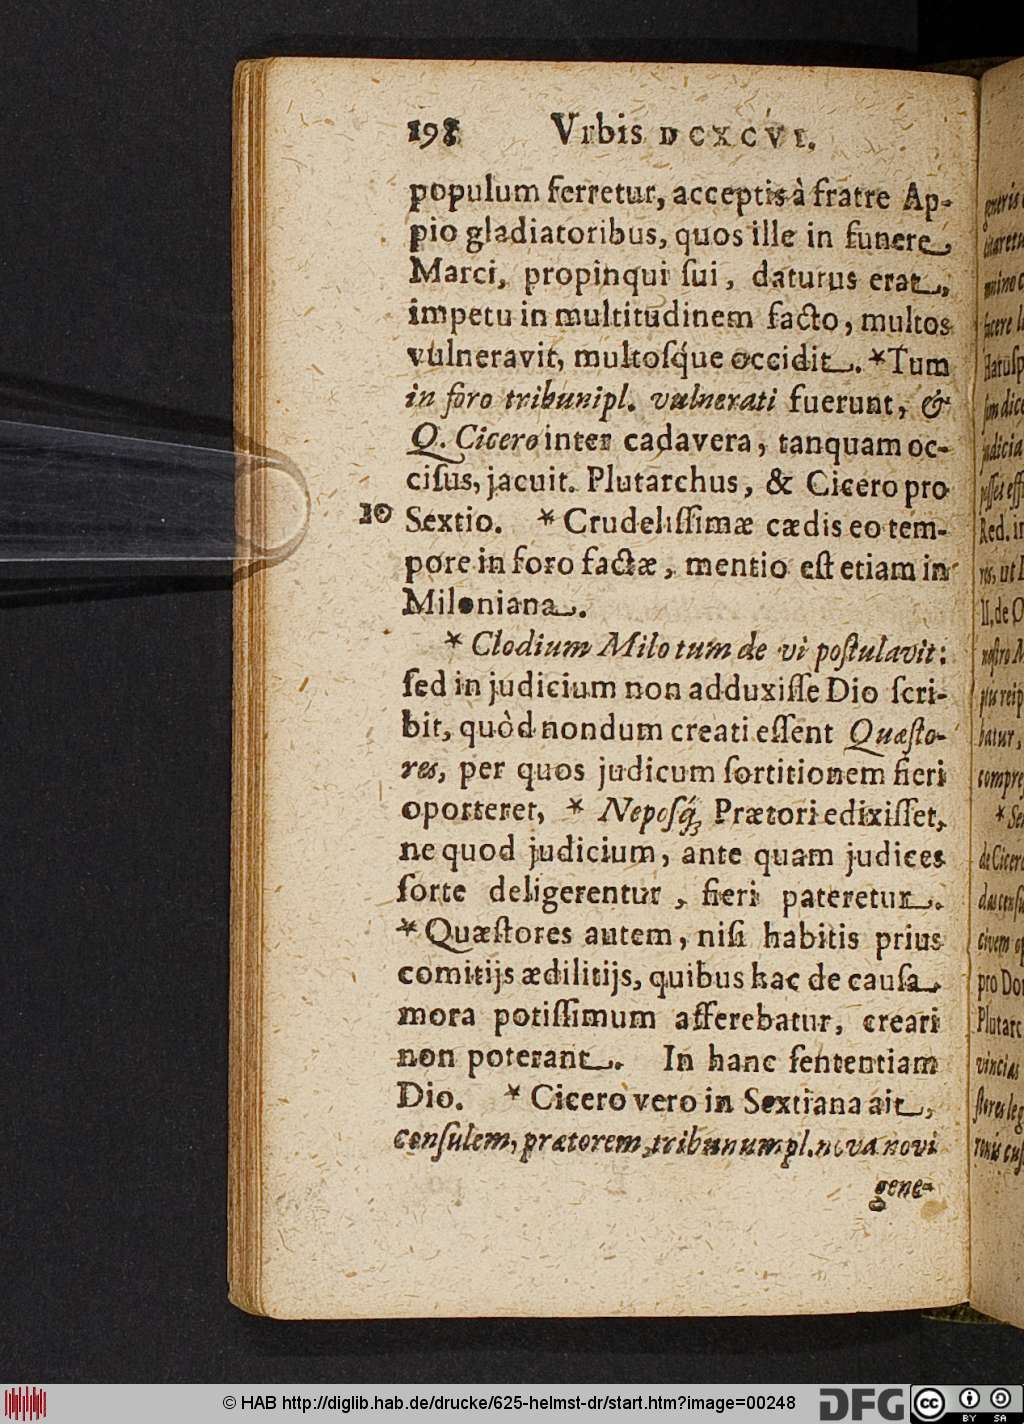 198 Vrbis DCXCVI.
populum ferretur, acceptis à fratre Ap-
pio gladiatoribus, quos ille in funere
Marci, propinqui ſui, daturus erat,
impetu in multitudinem facto, multos
vulneravit, multoſq́ue occidit. *Tum
in foro tribuni pl. vulnerati fuerunt, &
Q. Cicero inter cadavera, tanquam oc-
ciſus, jacuit. Plutarchus, & Cicero pro
10 Sextio. * Crudeliſſimæ cædis eo tem-
pore in foro factæ, mentio eſt etiam in
Miloniana.
* Clodium Milo tum de vi poſtulavit:
ſed in judicium non adduxiſſe Dio ſcri-
bit, quòd nondum creati eſſent Quæſto-
res, per quos judicum ſortitionem fieri
oporteret, * Nepoſq́; Prætori edixiſſet,
ne quod judicium, ante quam judices
ſorte deligerentur, fieri pateretur.
*Quæſtores autem, niſi habitis prius
comitijs ædilitijs, quibus hac de cauſa
mora potiſſimum afferebatur, creari
non poterant. In hanc ſententiam
Dio. * Cicero vero in Sextiana ait,
conſulem, prætorem, tribunum pl. nova novi
gene-
© HAB http://diglib.hab.de/drucke/625-helmst-dr/start.htm?image=00248
DFG
cc
BY SA